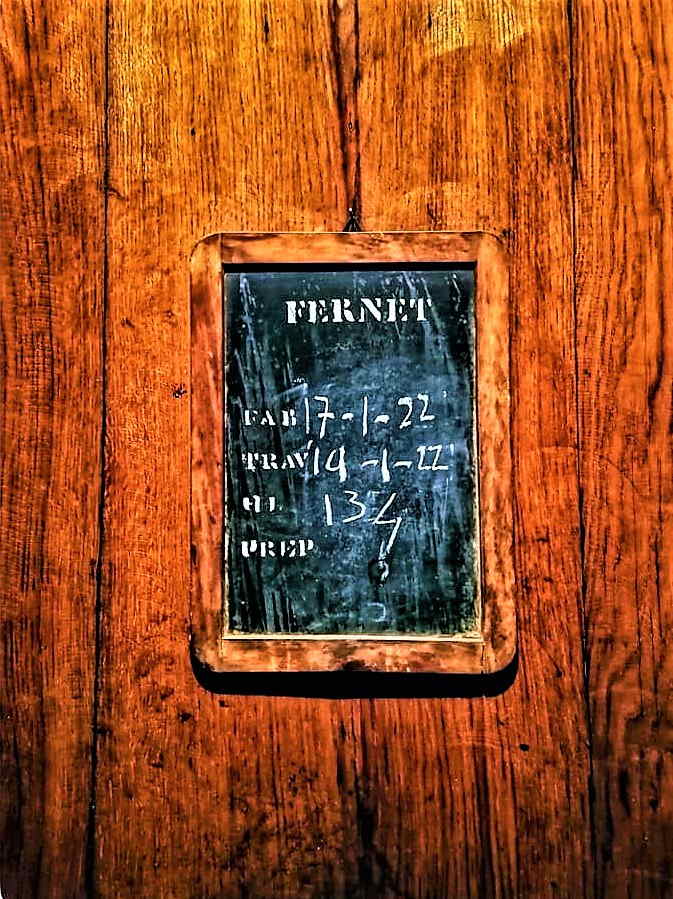 FERNET
FAB 17-1-22
TRAV 19-1-22
HL 134
PREP